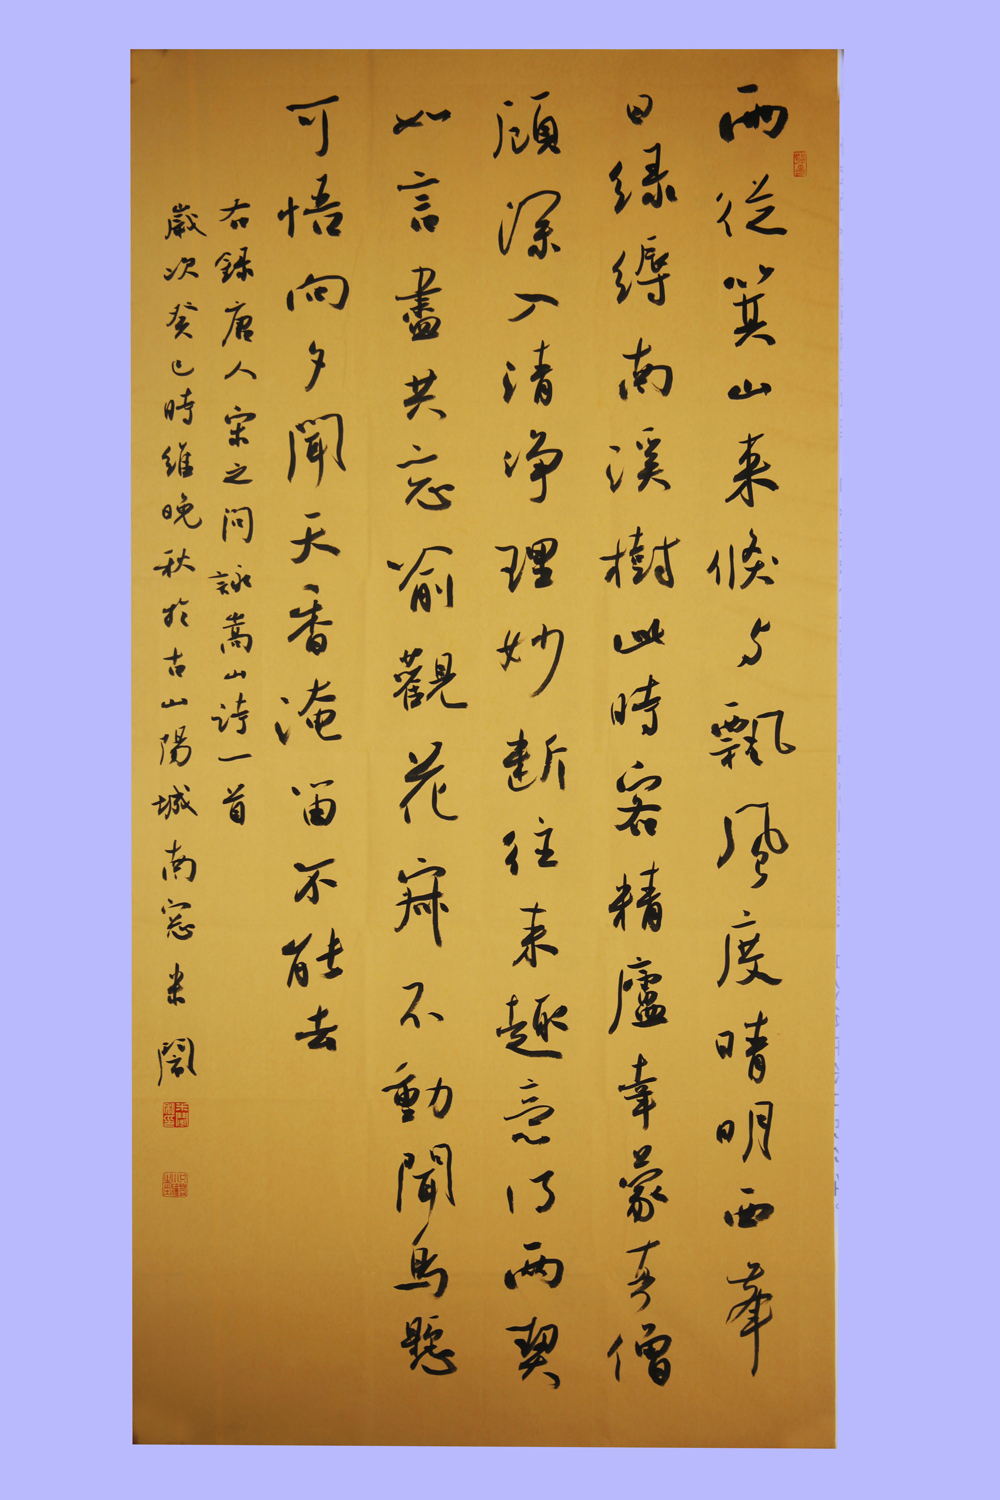 雨從箕山来倏与飄風度晴明西峯
日緑縟南溪樹此時客精廬幸蒙真僧
顧深入清浄理妙断往来趣意得两契
如言盡共忘喻觀花寂不動聞鳥懸
可悟向夕聞天香淹留不能去
右録唐人宋之问詠嵩山詩一首
歲次癸巳時維晚秋於古山陽城南窓米誾